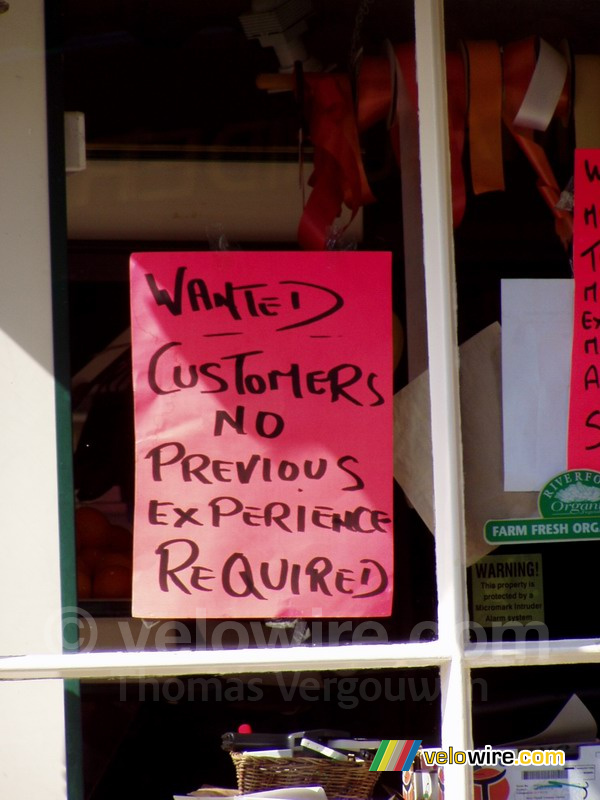 WANTED
CUSTOMERS
NO
PREVIOUS
EXPERIENCE
REQUIRED
RIVERFO
Organi
FARM FRESH ORGA
WARNING!
This property is
protected by a
Micromark Intruder
Alarm system
© velowire.com
Thomas Vergouwen
velowire.com